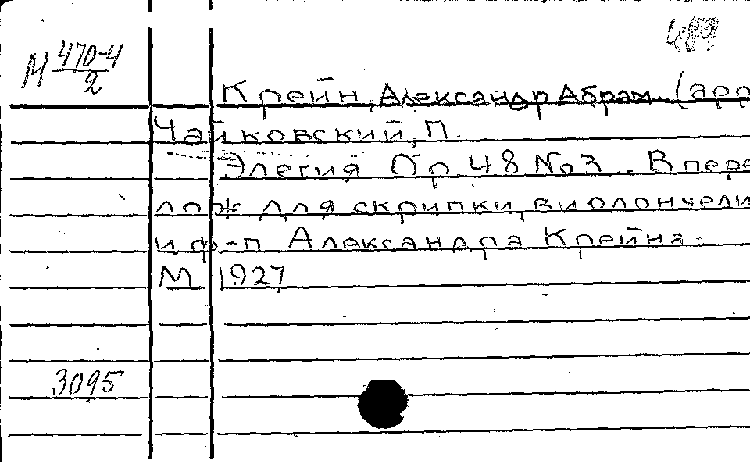 489
М 470-4
2
Крейн, Александр Абрам. (арр
Чайковский, П.
Элегия Op 48 No3. В пере
лож для скрипки, виолончели
и ф-п Александра Крейна.
М 1927
3095